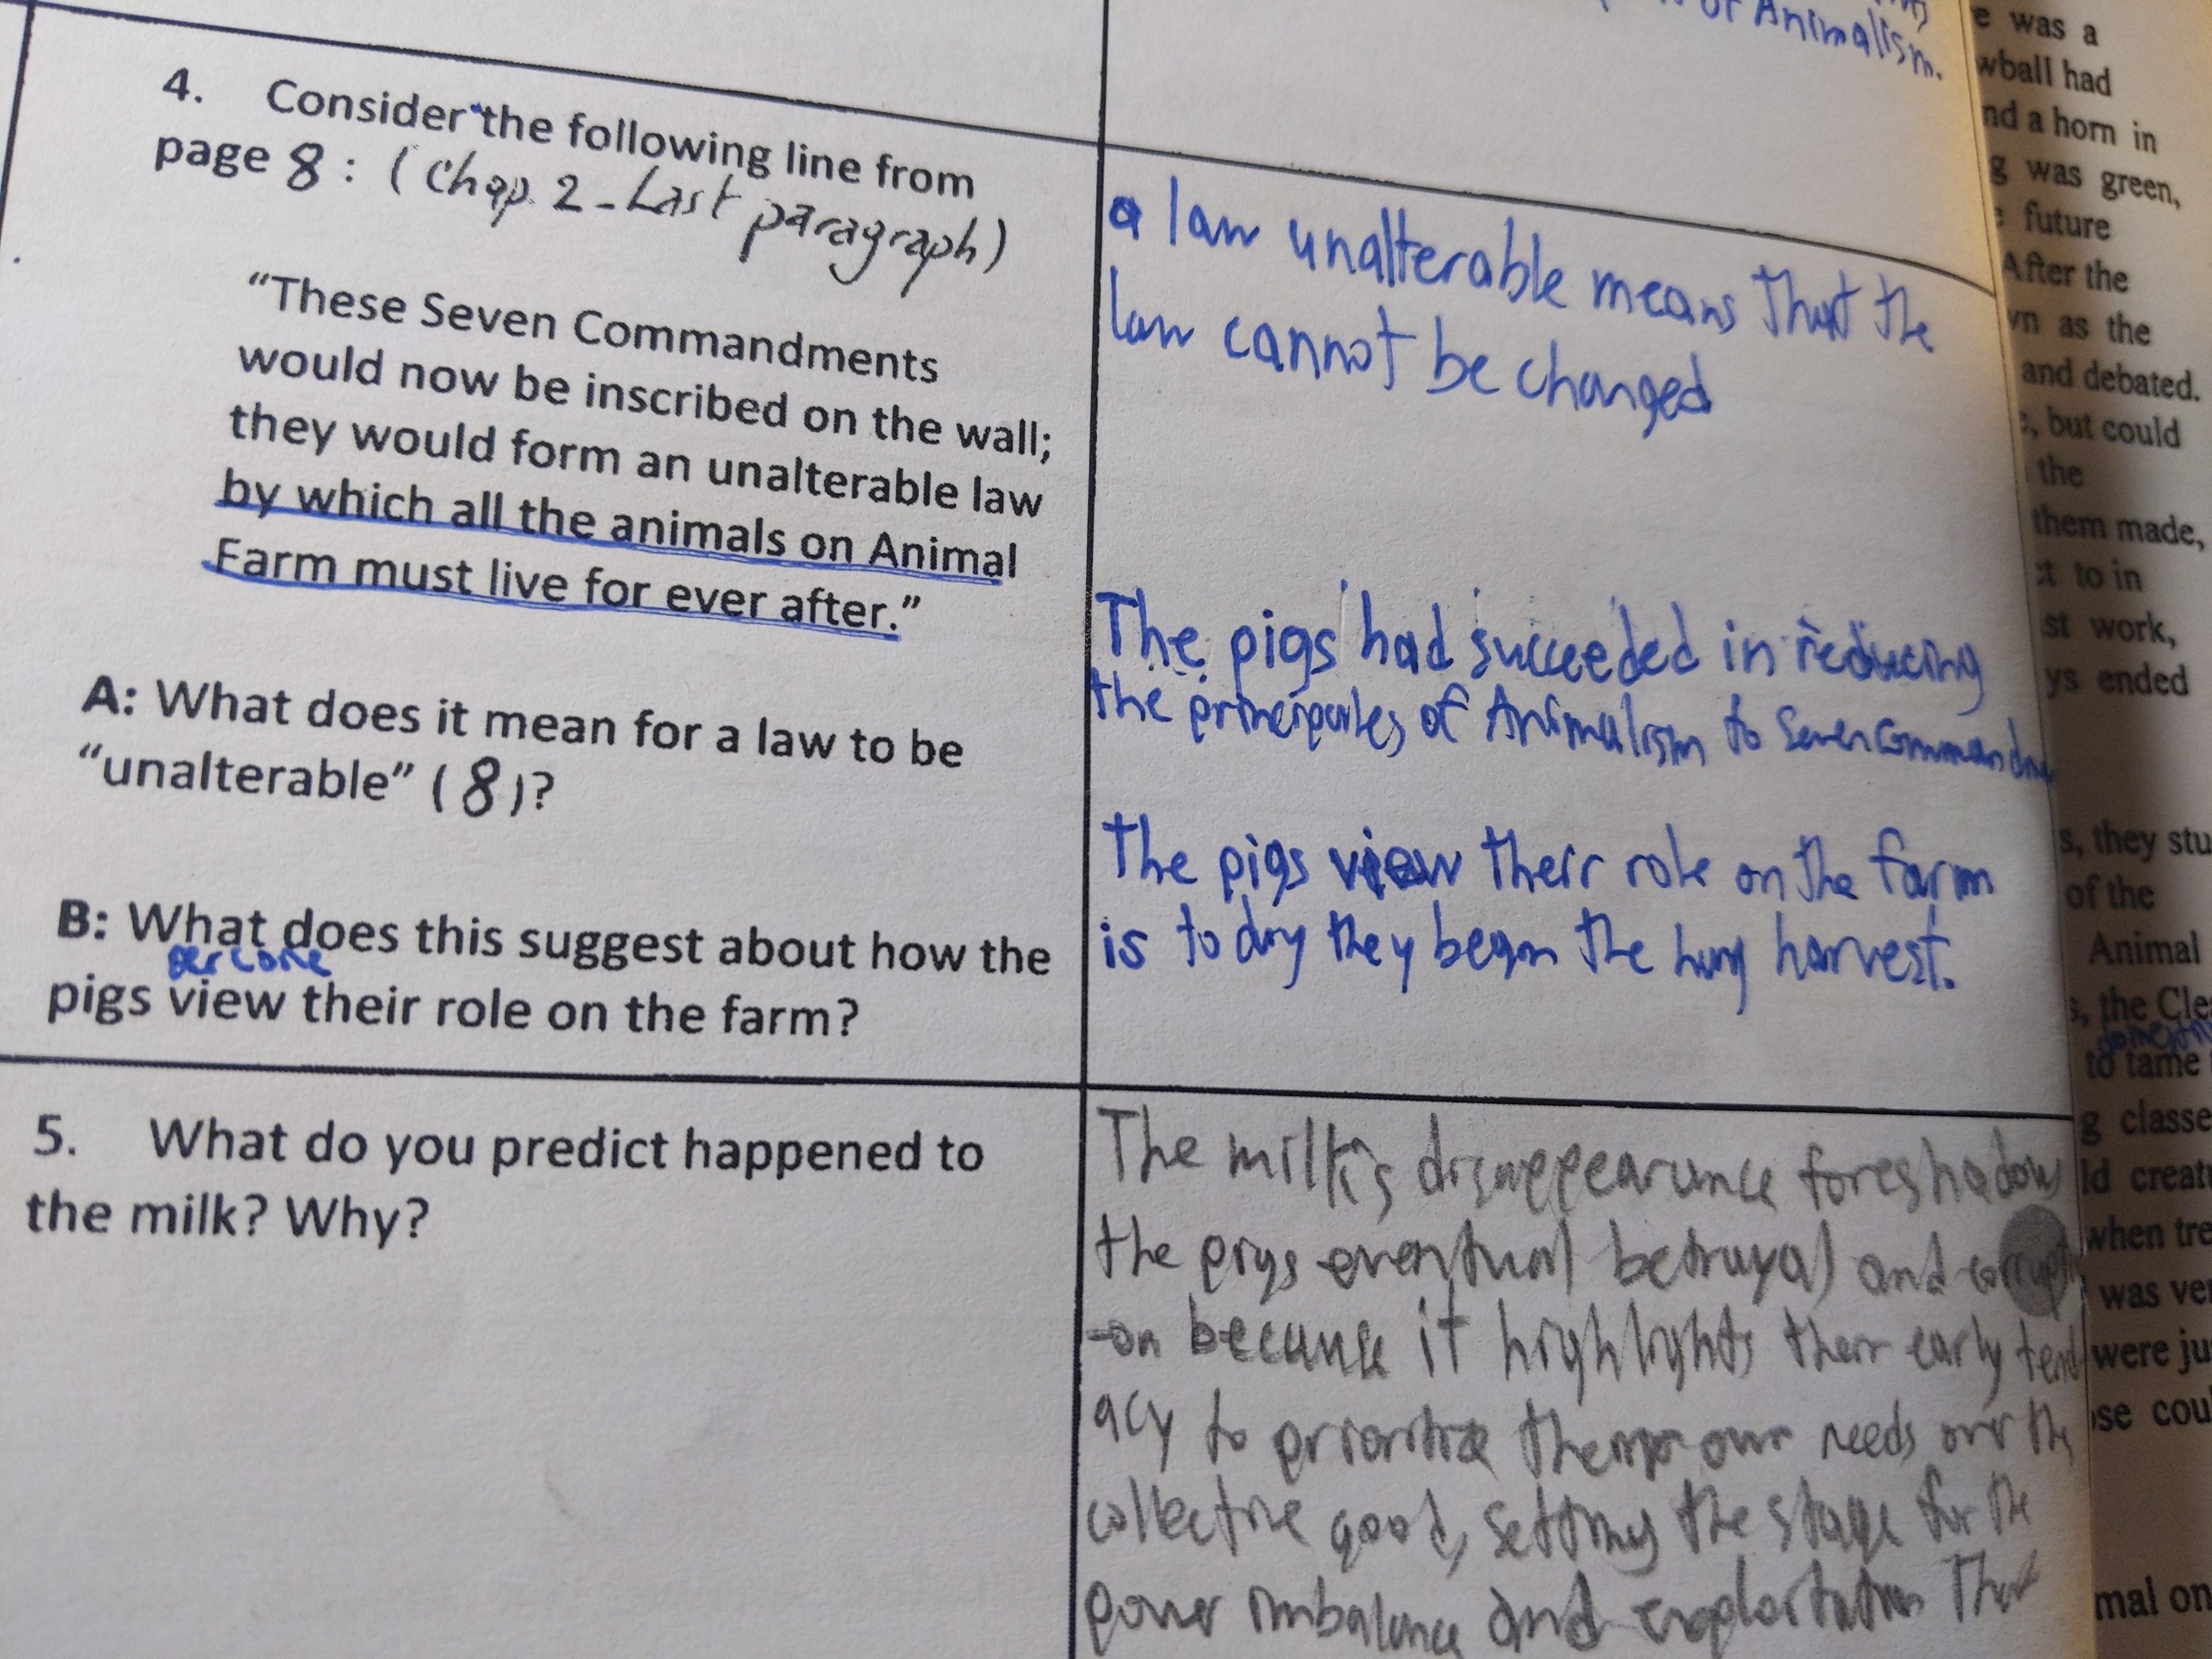 of Animalism.
4. Consider the following line from
page 8 : ( Chap. 2 - Last paragraph)
"These Seven Commandments
would now be inscribed on the wall;
they would form an unalterable law
by which all the animals on Animal
Farm must live for ever after."
A: What does it mean for a law to be
"unalterable" ( 8 )?
B: What does this suggest about how the
pigs view their role on the farm?
a law unalterable means that the
law cannot be changed
The pigs had succeeded in reducing
the of Animalism to Seven
The pigs view their role on the farm
is to they began the harvest.
5. What do you predict happened to
the milk? Why?
The milk's foreshadow
the pigs eventual betrayal and
-on because it highlights their early
to prioritize own needs over the
collective good, setting the stage for the
power imbalance and that
e was a
wball had
nd a horn in
g was green,
future
After the
wn as the
and debated.
, but could
the
them made,
to in
st work,
ys ended
s, they stu
of the
Animal
s, the Cle
to tame
g classe
ld creat
when tre
was ve
were ju
se cou
mal on